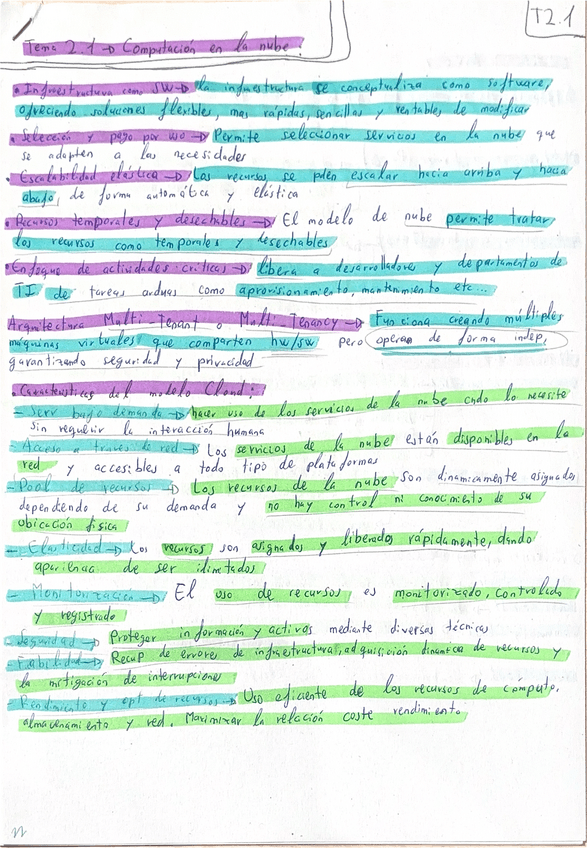 T2.1
Tema 2.1 → Computación en la nube:
• Infraestructura como SW → la infraestructura se conceptualiza como software,
ofreciendo soluciones flexibles, mas rápidas, sencillas y rentables de modificar
• Selección y pago por uso → Permite seleccionar servicios en la nube que
se adapten a las necesidades
• Escalabilidad elástica → Los recursos se pden escalar hacia arriba y hacia
abajo, de forma automática y elástica
• Recursos temporales y desechables → El modelo de nube permite tratar
los recursos como temporales y desechables
• Enfoque de actividades críticas → libera a desarrolladores y departamentos de
TI de tareas arduas como aprovisionamiento, mantenimiento etc...
Arquitectura Multi-Tenant o Multi-Tenancy → Funciona creando múltiples
máquinas virtuales que comparten hw/sw pero operan de forma indep,
garantizando seguridad y privacidad
• Características del modelo Cloud:
- Serv bajo demanda → hacer uso de los servicios de la nube cndo lo necesite
sin requerir la interacción humana
- Acceso a través de red → Los servicios de la nube están disponibles en la
red y accesibles a todo tipo de plataformas
- Pool de recursos → Los recursos de la nube son dinamicamente asignados
dependiendo de su demanda y no hay control ni conocimiento de su
ubicación física
- Elasticidad → Los recursos son asignados y liberados rápidamente, dando
apariencia de ser ilimitados
- Monitorización → El uso de recursos es monitorizado, controlado
y registrado
- Seguridad → Proteger información y activos mediante diversas técnicas
- Fiabilidad → Recup de errores de infraestructura, adquisición dinámica de recursos y
la mitigación de interrupciones
- Rendimiento y opt de recursos → Uso eficiente de los recursos de computo,
almacenamiento y red. Maximizar la relación coste rendimiento